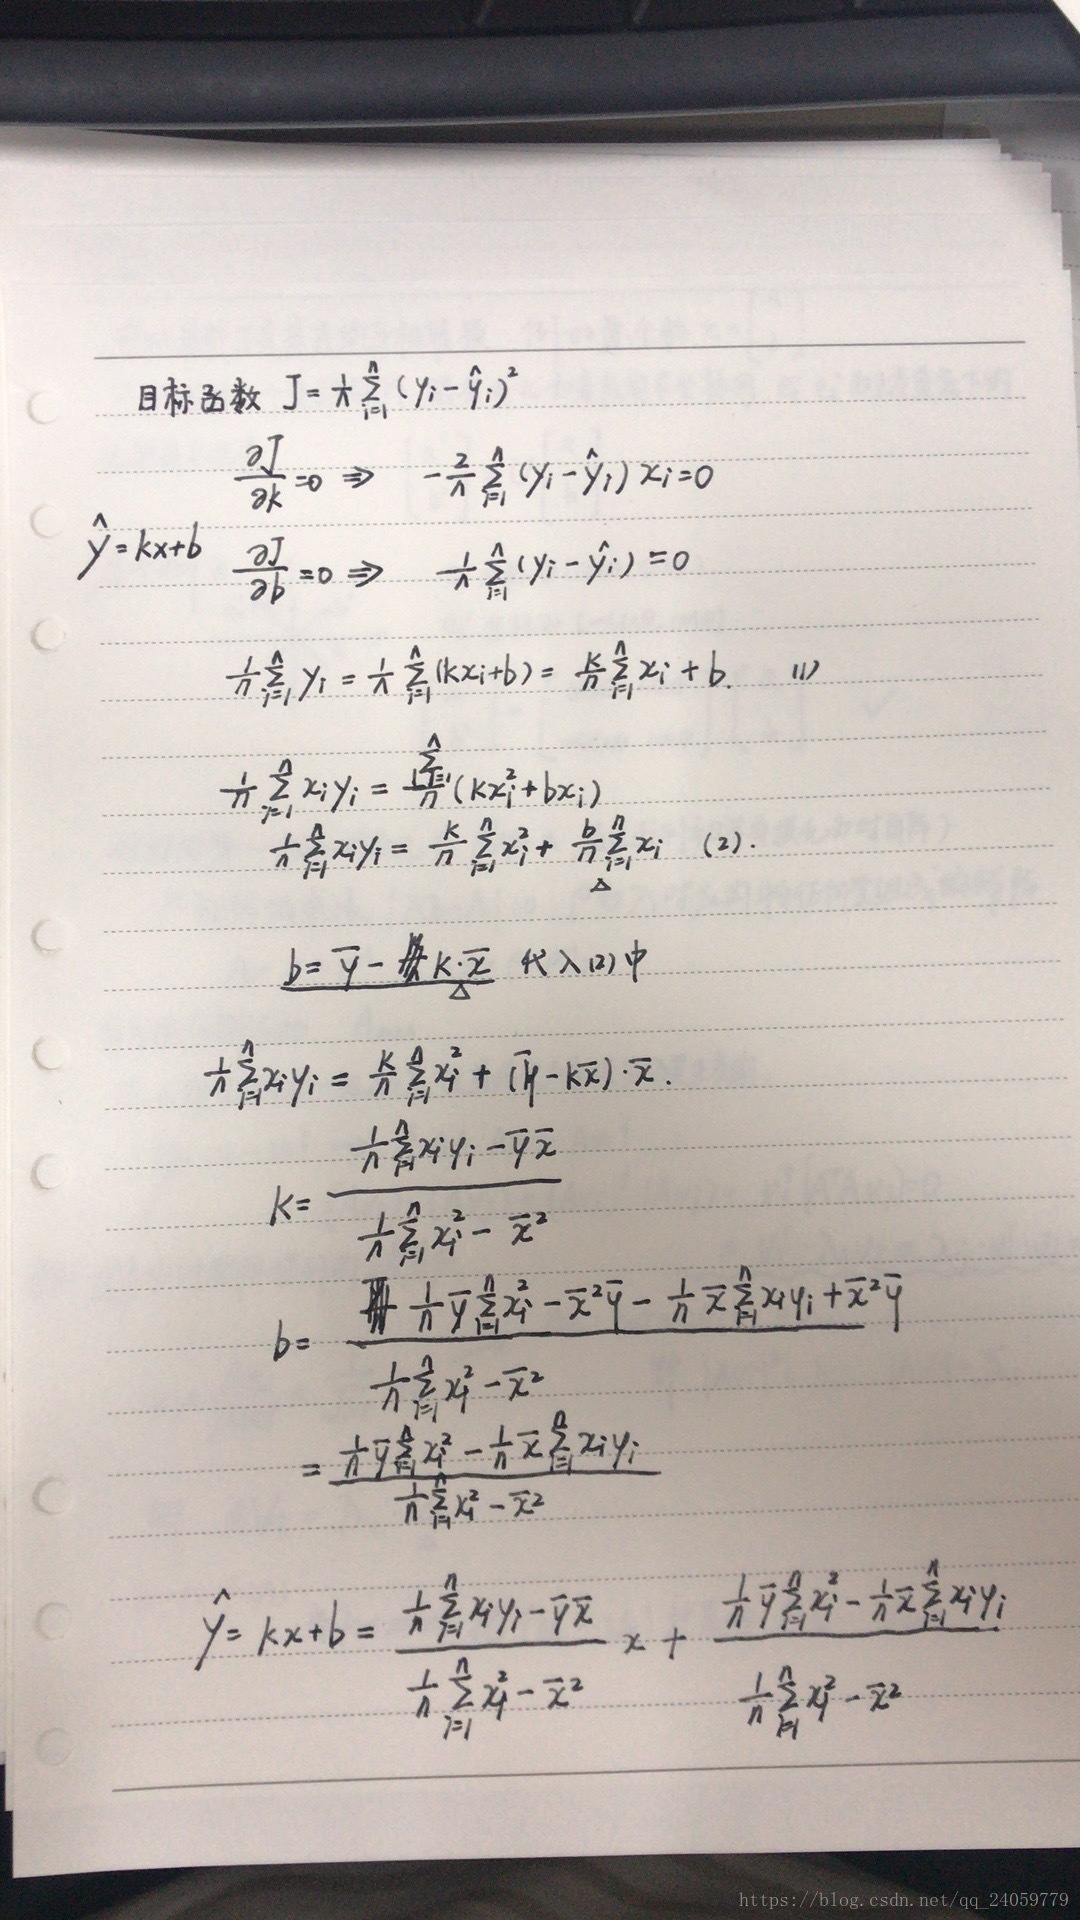 目标函数 J = 1/n ∑_{i=1}^{n} (y_i - ŷ_i)²
∂J/∂k = 0 ⇒ -2/n ∑_{i=1}^{n} (y_i - ŷ_i) x_i = 0
ŷ = kx+b
∂J/∂b = 0 ⇒ -1/n ∑_{i=1}^{n} (y_i - ŷ_i) = 0
1/n ∑_{i=1}^{n} y_i = 1/n ∑_{i=1}^{n} (kx_i+b) = k/n ∑_{i=1}^{n} x_i + b. (1)
1/n ∑_{i=1}^{n} x_i y_i = 1/n ∑_{i=1}^{n} (kx_i² + bx_i)
1/n ∑_{i=1}^{n} x_i y_i = k/n ∑_{i=1}^{n} x_i² + b/n ∑_{i=1}^{n} x_i (2).
△
b = y̅ - k·x̅ 代入(2)中
△
1/n ∑_{i=1}^{n} x_i y_i = k/n ∑_{i=1}^{n} x_i² + (y̅ - kx̅)·x̅.
k = (1/n ∑_{i=1}^{n} x_i y_i - y̅ x̅) / (1/n ∑_{i=1}^{n} x_i² - x̅²)
b = (1/n y̅ ∑_{i=1}^{n} x_i² - x̅² y̅ - 1/n x̅ ∑_{i=1}^{n} x_i y_i + x̅² y̅) / (1/n ∑_{i=1}^{n} x_i² - x̅²)
= (1/n y̅ ∑_{i=1}^{n} x_i² - 1/n x̅ ∑_{i=1}^{n} x_i y_i) / (1/n ∑_{i=1}^{n} x_i² - x̅²)
ŷ = kx+b = (1/n ∑_{i=1}^{n} x_i y_i - y̅ x̅) / (1/n ∑_{i=1}^{n} x_i² - x̅²) x + (1/n y̅ ∑_{i=1}^{n} x_i² - 1/n x̅ ∑_{i=1}^{n} x_i y_i) / (1/n ∑_{i=1}^{n} x_i² - x̅²)
https://blog.csdn.net/qq_24059779